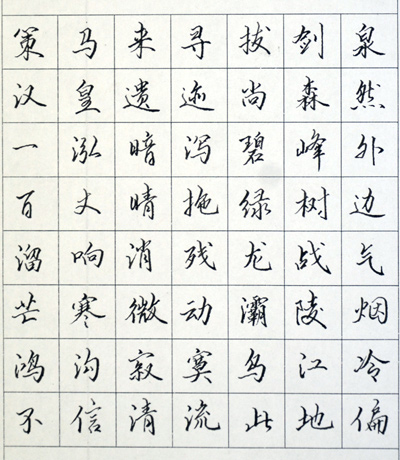 策马来寻拔剑泉
汉皇遗迹尚森然
一泓暗泻碧峰外
百丈晴拖绿树边
溜响消残龙战气
芒寒微动灞陵烟
鸿沟寂寞乌江冷
不信清流此地偏